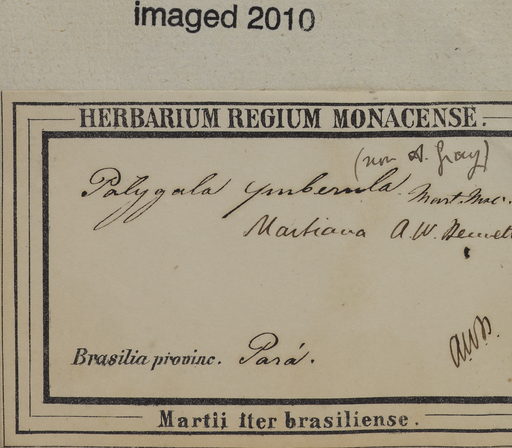 imaged 2010
HERBARIUM REGIUM MONACENSE.
(non A. Gray)
Polygala puberula Mart. Mac.
Martiana A.W. Bennett
AWB.
Brasilia provinc. Pará.
Martii Iter brasiliense.